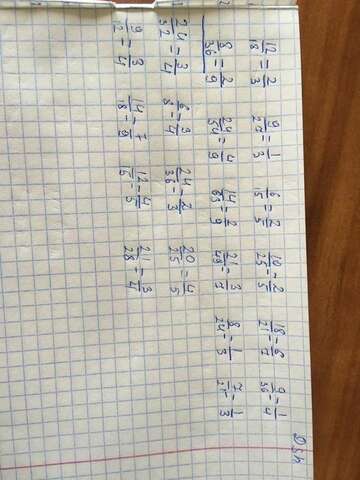 12/18=2/3 9/27=1/3 6/15=2/5 10/25=2/5 18/21=6/7 9/36=1/4
8/36=2/9 24/54=4/9 14/63=2/9 21/49=3/7 8/24=1/3 7/21=1/3
24/32=3/4 6/8=3/4 24/36=2/3 20/25=4/5
9/12=3/4 14/18=7/9 12/15=4/5 21/28=3/4